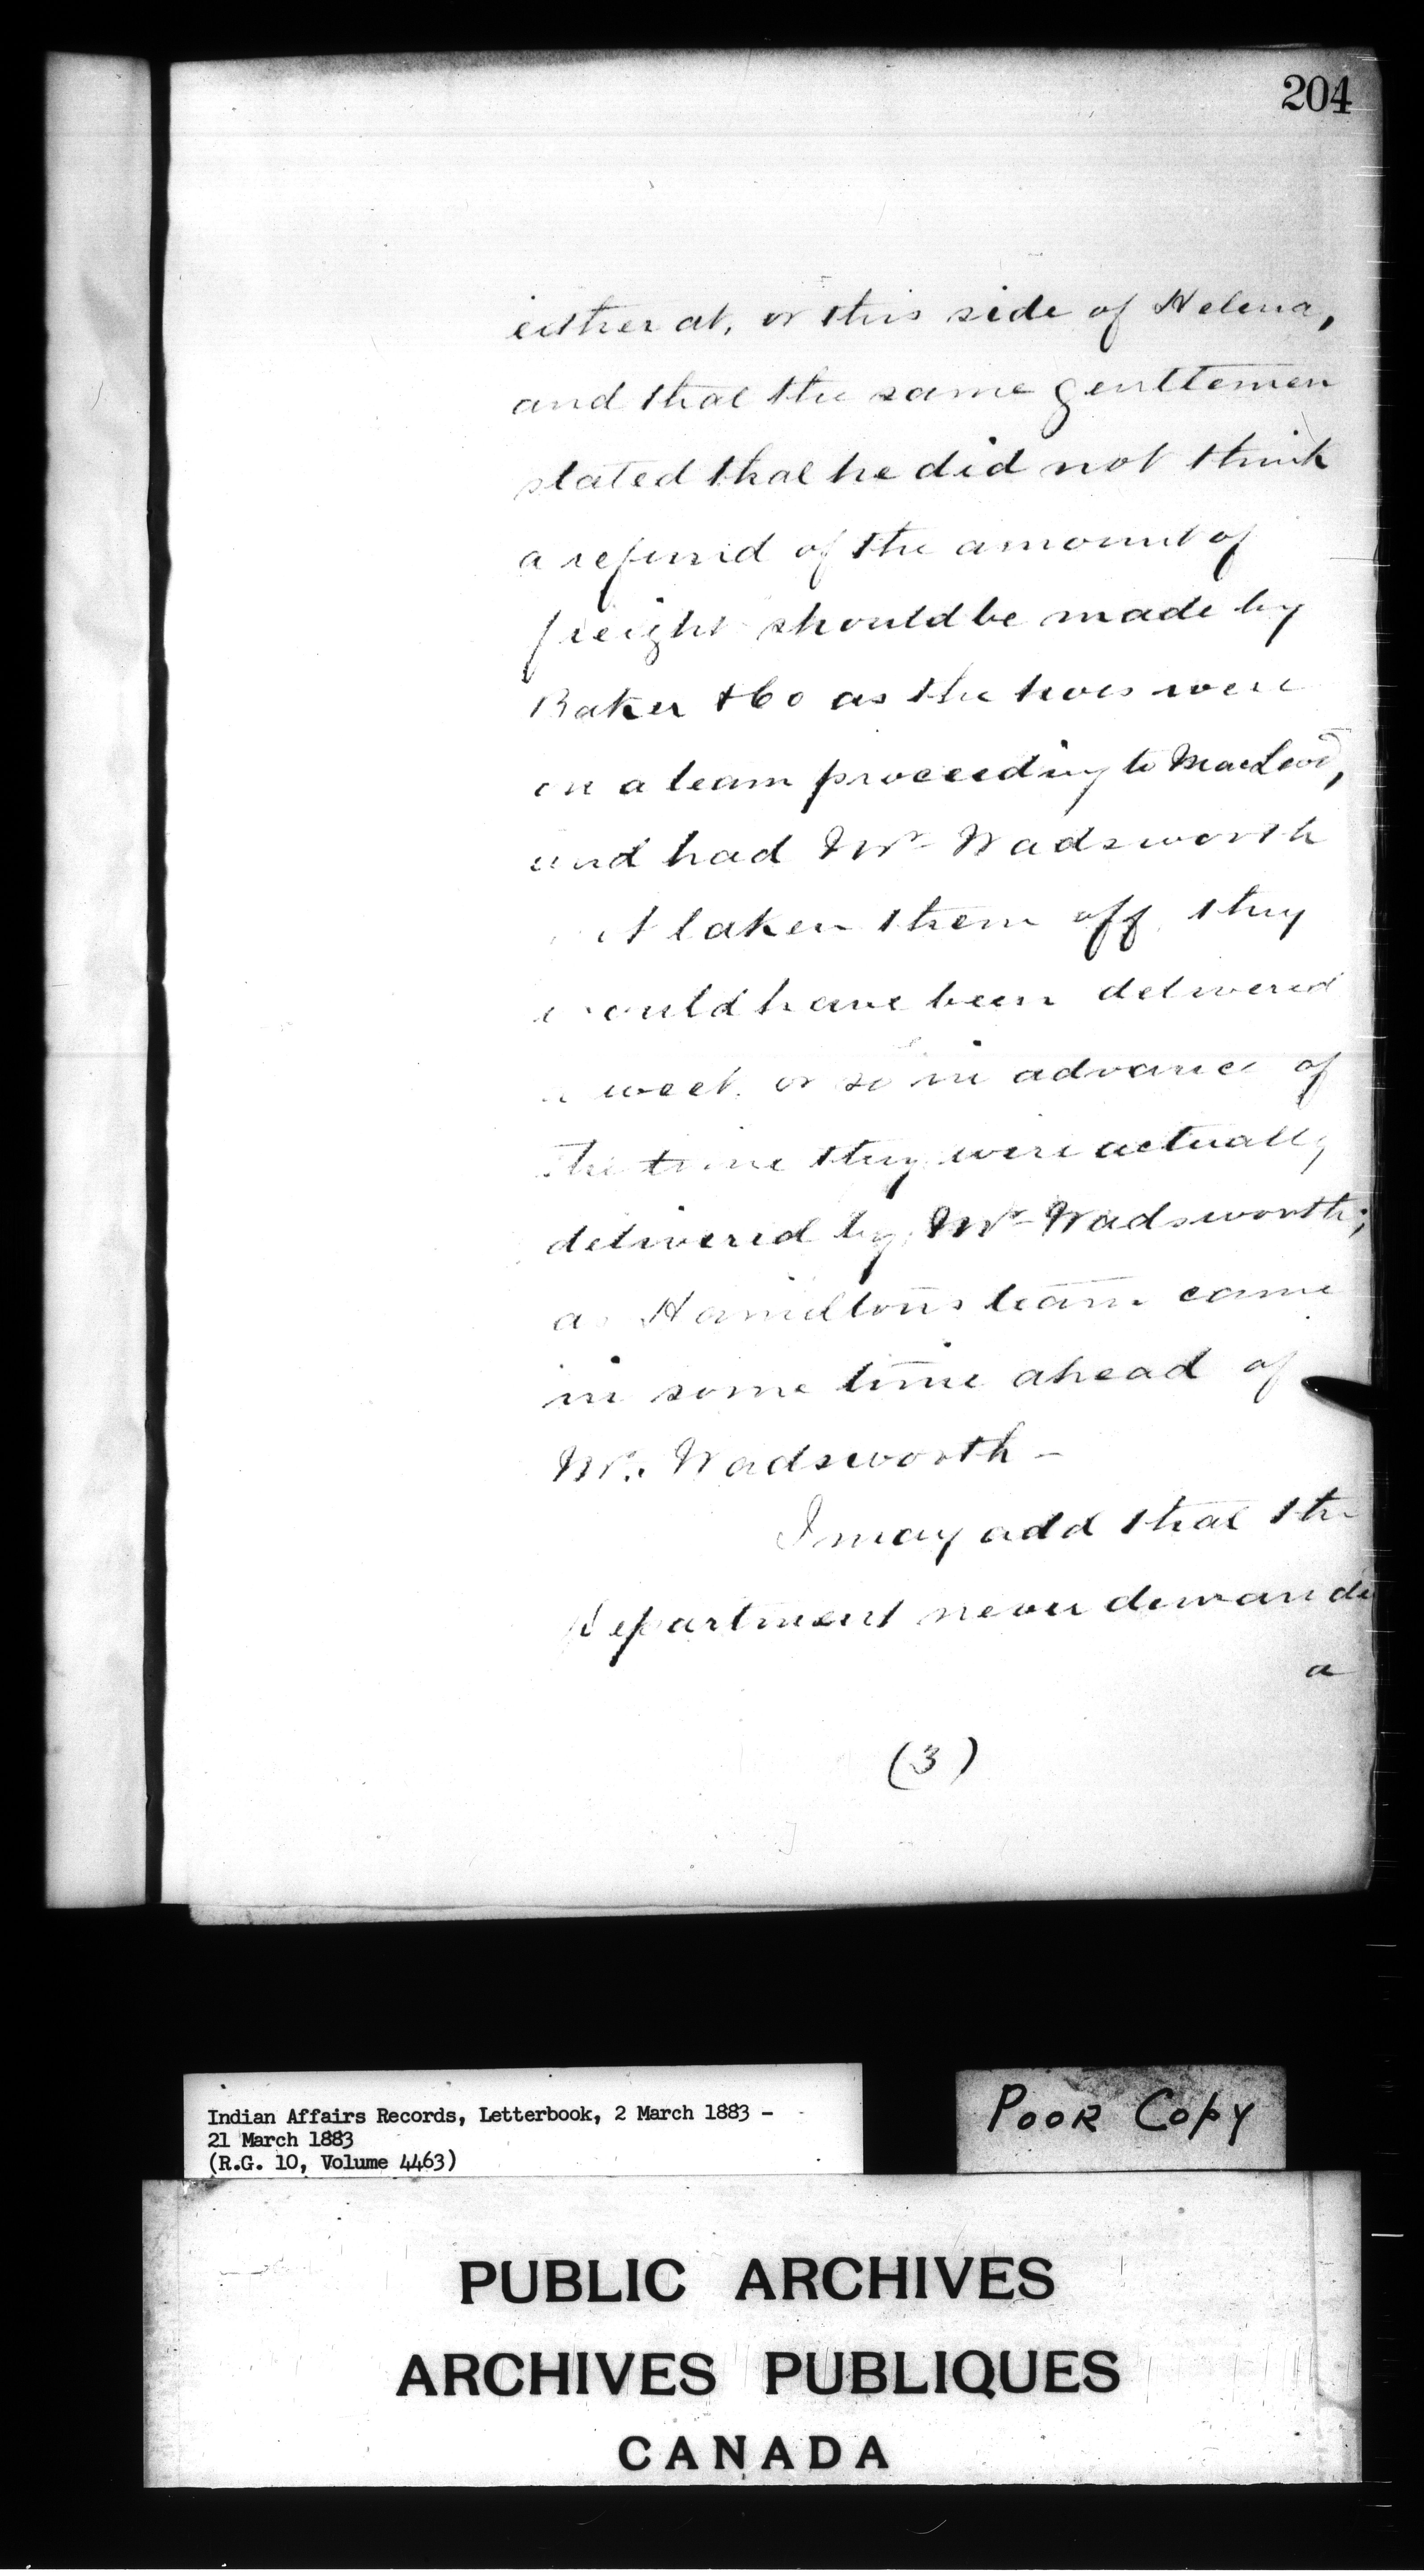 204
either at, or this side of Helena,
and that the same gentlemen
stated that he did not think
a refund of the amount of
freight should be made by
Baker & Co as the hoes were
on a team proceeding to MacLeod,
and had Mr Wadsworth
taken them off, they
would have been delivered
week or so in advance of
the time they were actually
delivered by Mr Wadsworth;
as Hamiltons team came
in some time ahead of
Mr. Wadsworth -
I may add that the
Department never
a
(3)
Indian Affairs Records, Letterbook, 2 March 1883 -
21 March 1883
(R.G. 10, Volume 4463)
POOR COPY
PUBLIC ARCHIVES
ARCHIVES PUBLIQUES
CANADA